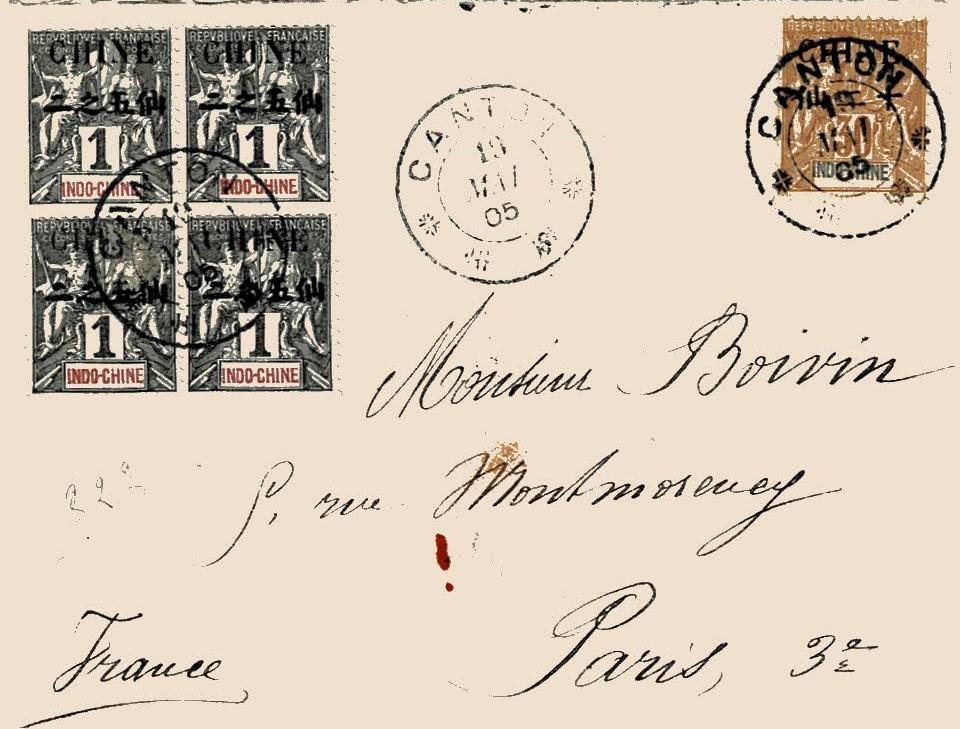 REPVBLIQVE FRANÇAISE
CHINE
仙五之二
1
INDO-CHINE
REPVBLIQVE FRANÇAISE
CHINE
仙五之二
1
INDO-CHINE
REPVBLIQVE FRANÇAISE
CHINE
仙五之二
1
INDO-CHINE
REPVBLIQVE FRANÇAISE
CHINE
仙五之二
1
INDO-CHINE
CANTON
05
CANTON
19
MAI
05
CHINE
30
INDO-CHINE
CANTON
19
MAI
05
Monsieur Boivin
rue Montmorency
Paris, 3e
France